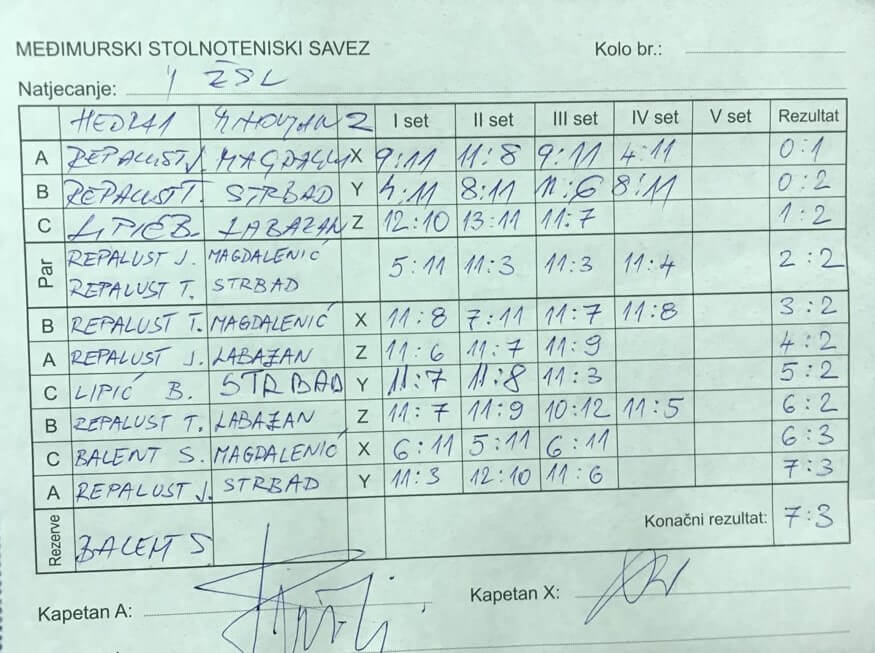 MEĐIMURSKI STOLNOTENISKI SAVEZ Kolo br.:
Natjecanje: 1 ŽSL
I set II set III set IV set V set Rezultat
A REPALUST J. X 9:11 11:8 9:11 4:11 0:1
B REPALUST T. STRBAD Y 4:11 8:11 11:6 8:11 0:2
C LIPIĆ B. LABAZAN Z 12:10 13:11 11:7 1:2
Par REPALUST J. MAGDALENIĆ 5:11 11:3 11:3 11:4 2:2
REPALUST T. STRBAD
B REPALUST T. MAGDALENIĆ X 11:8 7:11 11:7 11:8 3:2
A REPALUST J. LABAZAN Z 11:6 11:7 11:9 4:2
C LIPIĆ B. STRBAD Y 11:7 11:8 11:3 5:2
B REPALUST T. LABAZAN Z 11:7 11:9 10:12 11:5 6:2
C BALENT S. MAGDALENIĆ X 6:11 5:11 6:11 6:3
A REPALUST J. STRBAD Y 11:3 12:10 11:6 7:3
Rezerve BALENT S Konačni rezultat: 7:3
Kapetan A: Kapetan X: